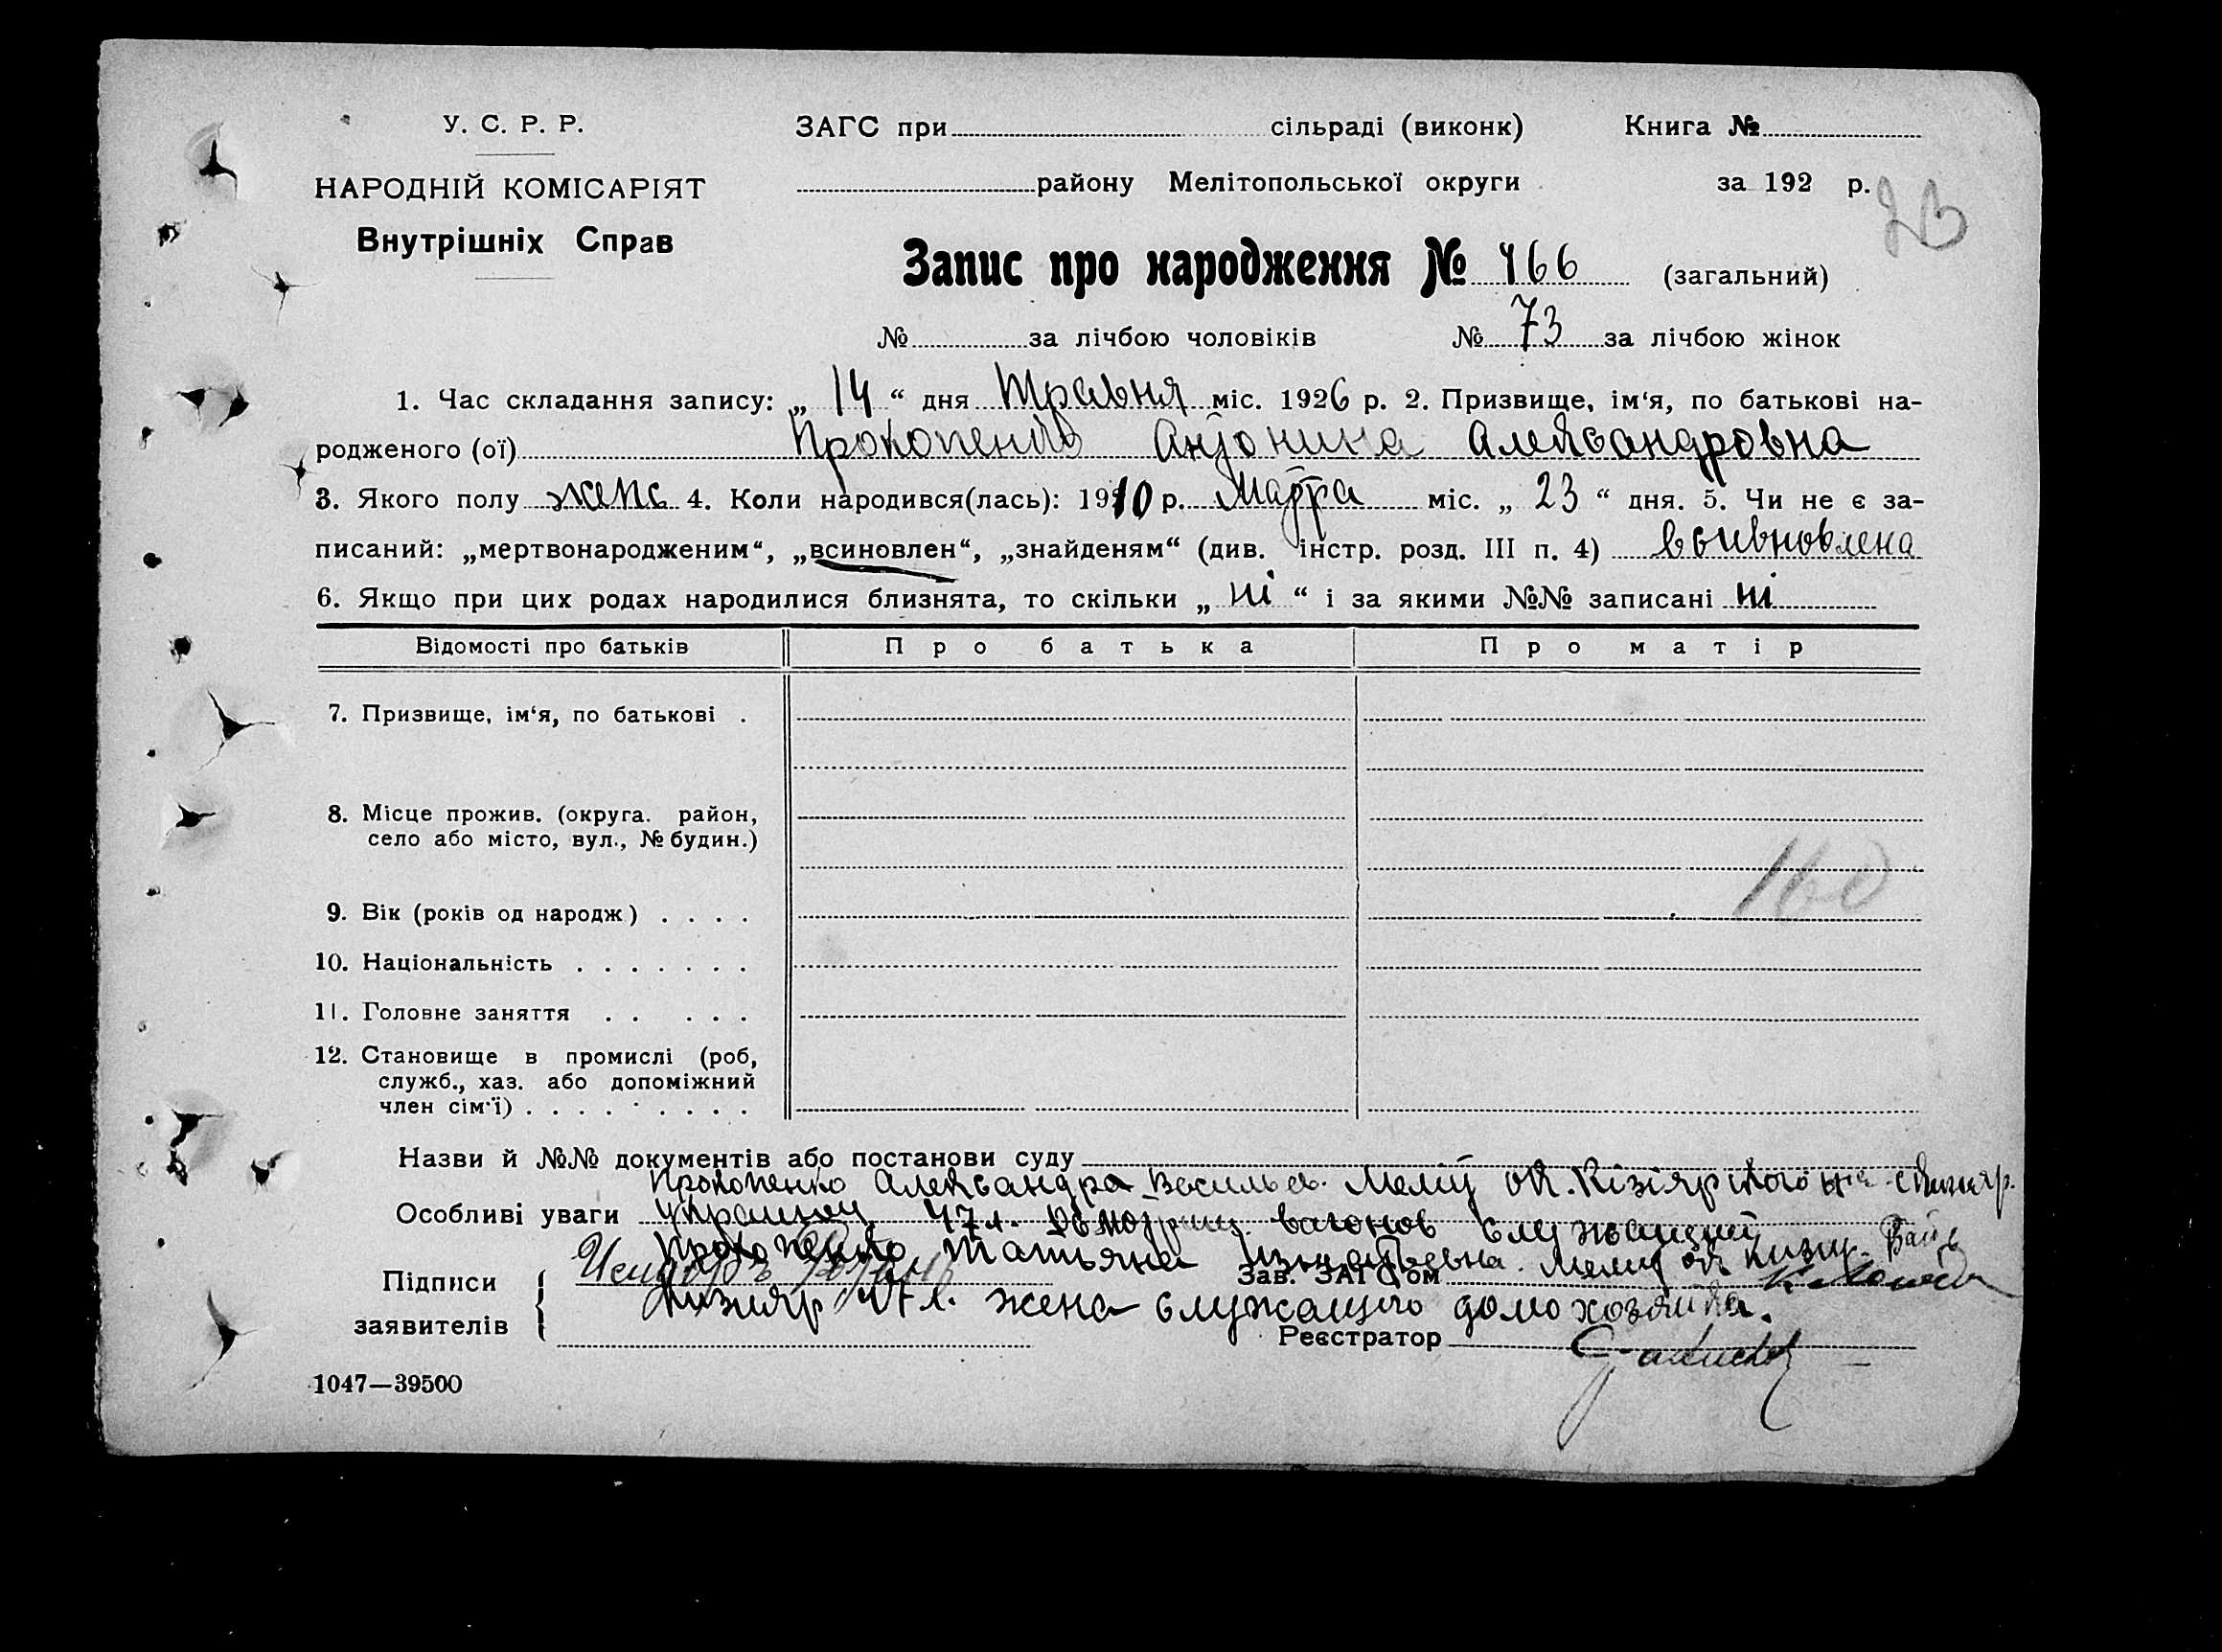 У. С. Р. Р.
НАРОДНІЙ КОМІСАРІЯТ
Внутрішніх Справ
ЗАГС при сільраді (виконк) Книга №
району Мелітопольської округи за 192 р.
Запис про народження № 466 (загальний)
№ за лічбою чоловіків № 73 за лічбою жінок
1. Час складання запису: „ 14 “ дня Травня міс. 1926 р. 2. Призвище, ім‘я, по батькові на-
родженого (ої) Антонина Александровна
3. Якого полу 4. Коли народився(лась): 1910 р. Марта міс. „ 23 “ дня. 5. Чи не є за-
писаний: „мертвонародженим“, „всиновлен“, „знайденям“ (див. інстр. розд. III п. 4)
6. Якщо при цих родах народилися близнята, то скільки „ ні “ і за якими №№ записані ні
Відомості про батьків Про батька Про матір
7. Призвище, ім‘я, по батькові .
8. Місце прожив. (округа. район,
село або місто, вул., № будин.)
160
9. Вік (років од народж) . . . .
10. Національність . . . . . . .
11. Головне заняття . . . . .
12. Становище в промислі (роб,
служб., хаз. або допоміжний
член сім‘ї) . . . . . . . . .
Назви й №№ документів або постанови суду
Прокопенко Александра Василь ев. Мелит ок.
Особливі уваги 47 л. вагонов служащий
Прокопенко Татьяна Мелит ок
Підписи Зав. ЗАГС‘ом
Кизияр 47 л. жена служащего домохозяйка.
заявителів Реєстратор
1047—39500